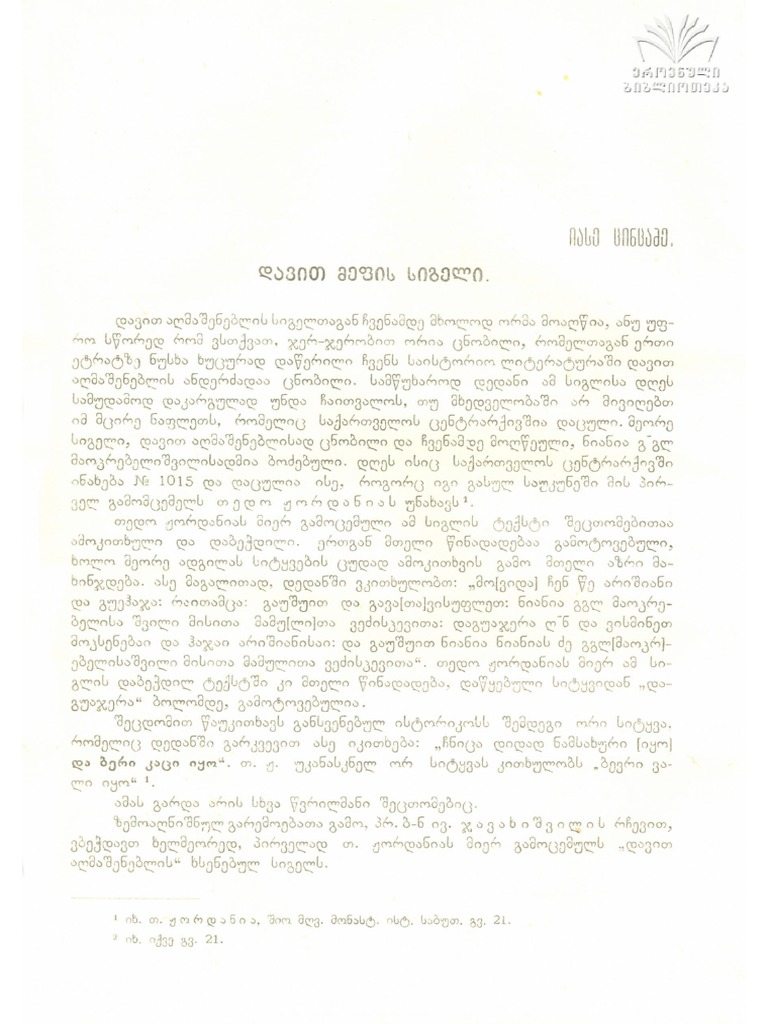 ეროვნული
ბიბლიოთეკა
იასე ცინცაძე.
დავით მეფის სიგელი.
დავით აღმაშენებლის სიგელთაგან ჩვენამდე მხოლოდ ორმა მოაღწია, ანუ უფ-
რო სწორედ რომ ვსთქვათ, ჯერ-ჯერობით ორია ცნობილი, რომელთაგან ერთი
ეტრატზე ნუსხა ხუცურად დაწერილი ჩვენს საისტორიო ლიტერატურაში დავით
აღმაშენებლის ანდერძადაა ცნობილი. სამწუხაროდ დედანი ამ სიგლისა დღეს
სამუდამოდ დაკარგულად უნდა ჩაითვალოს, თუ მხედველობაში არ მივიღებთ
იმ მცირე ნაფლეთს, რომელიც საქართველოს ცენტრარქივშია დაცული. მეორე
სიგელი, დავით აღმაშენებლისად ცნობილი და ჩვენამდე მოღწეული, ნიანია გ~გლ
მაოკრებელიშვილისადმია ბოძებული. დღეს ისიც საქართველოს ცენტრარქივში
ინახება № 1015 და დაცულია ისე, როგორც იგი გასულ საუკუნეში მის პირ-
ველ გამომცემელს თედო ჟორდანიას უნახავს¹.
თედო ჟორდანიას მიერ გამოცემული ამ სიგლის ტექსტი შეცთომებითაა
ამოკითხული და დაბეჭდილი. ერთგან მთელი წინადადებაა გამოტოვებული,
ხოლო მეორე ადგილას სიტყვების ცუდად ამოკითხვის გამო მთელი აზრი მა-
ხინჯდება. ასე მაგალითად, დედანში ვკითხულობთ: „მო[ვიდა] ჩენ წე არიშიანი
და გუეჰაჯა: რაითამცა: გაუშუით და გავა[თა]ვისუფლეთ: ნიანია გგლ მაოკრე-
ბელისა შვილი მისითა მამუ[ლი]თა ვეძისკევითა: დაგუაჯერა ღ~ნ და ვისმინეთ
მოკსენებაი და ჰაჯაი არიშიანისაი: და გაუშუით ნიანია ნიანიას ძე გგლ[მაოკრ]-
ებელისაშვილი მისითა მამულითა ვეძისკევითა“. თედო ჟორდანიას მიერ ამ სი-
გლის დაბეჭდილ ტექსტში კი მთელი წინადადება, დაწყებული სიტყვიდან „და-
გუაჯერა“ ბოლომდე, გამოტოვებულია.
შეცდომით წაუკითხავს განსვენებულ ისტორიკოსს შემდეგი ორი სიტყვა,
რომელიც დედანში გარკვევით ასე იკითხება: „ჩნიცა დიდად ნამსახური [იყო]
და ბერი კაცი იყო“. თ. ჟ. უკანასკნელ ორ სიტყვას კითხულობს „ბევრი ვა-
ლი იყო“ ¹.
ამას გარდა არის სხვა წვრილმანი შეცთომებიც.
ზემოაღნიშნულ გარემოებათა გამო, პრ. ბ-ნ ივ. ჯავახიშვილის რჩევით,
ვბეჭდავთ ხელმეორედ, პირველად თ. ჟორდანიას მიერ გამოცემულს „დავით
აღმაშენებლის“ ხსენებულ სიგელს.
¹ იხ. თ. ჟორდანია, შიო მღვ. მონასტ. ისტ. საბუთ. გვ. 21.
² იხ. იქვე გვ. 21.